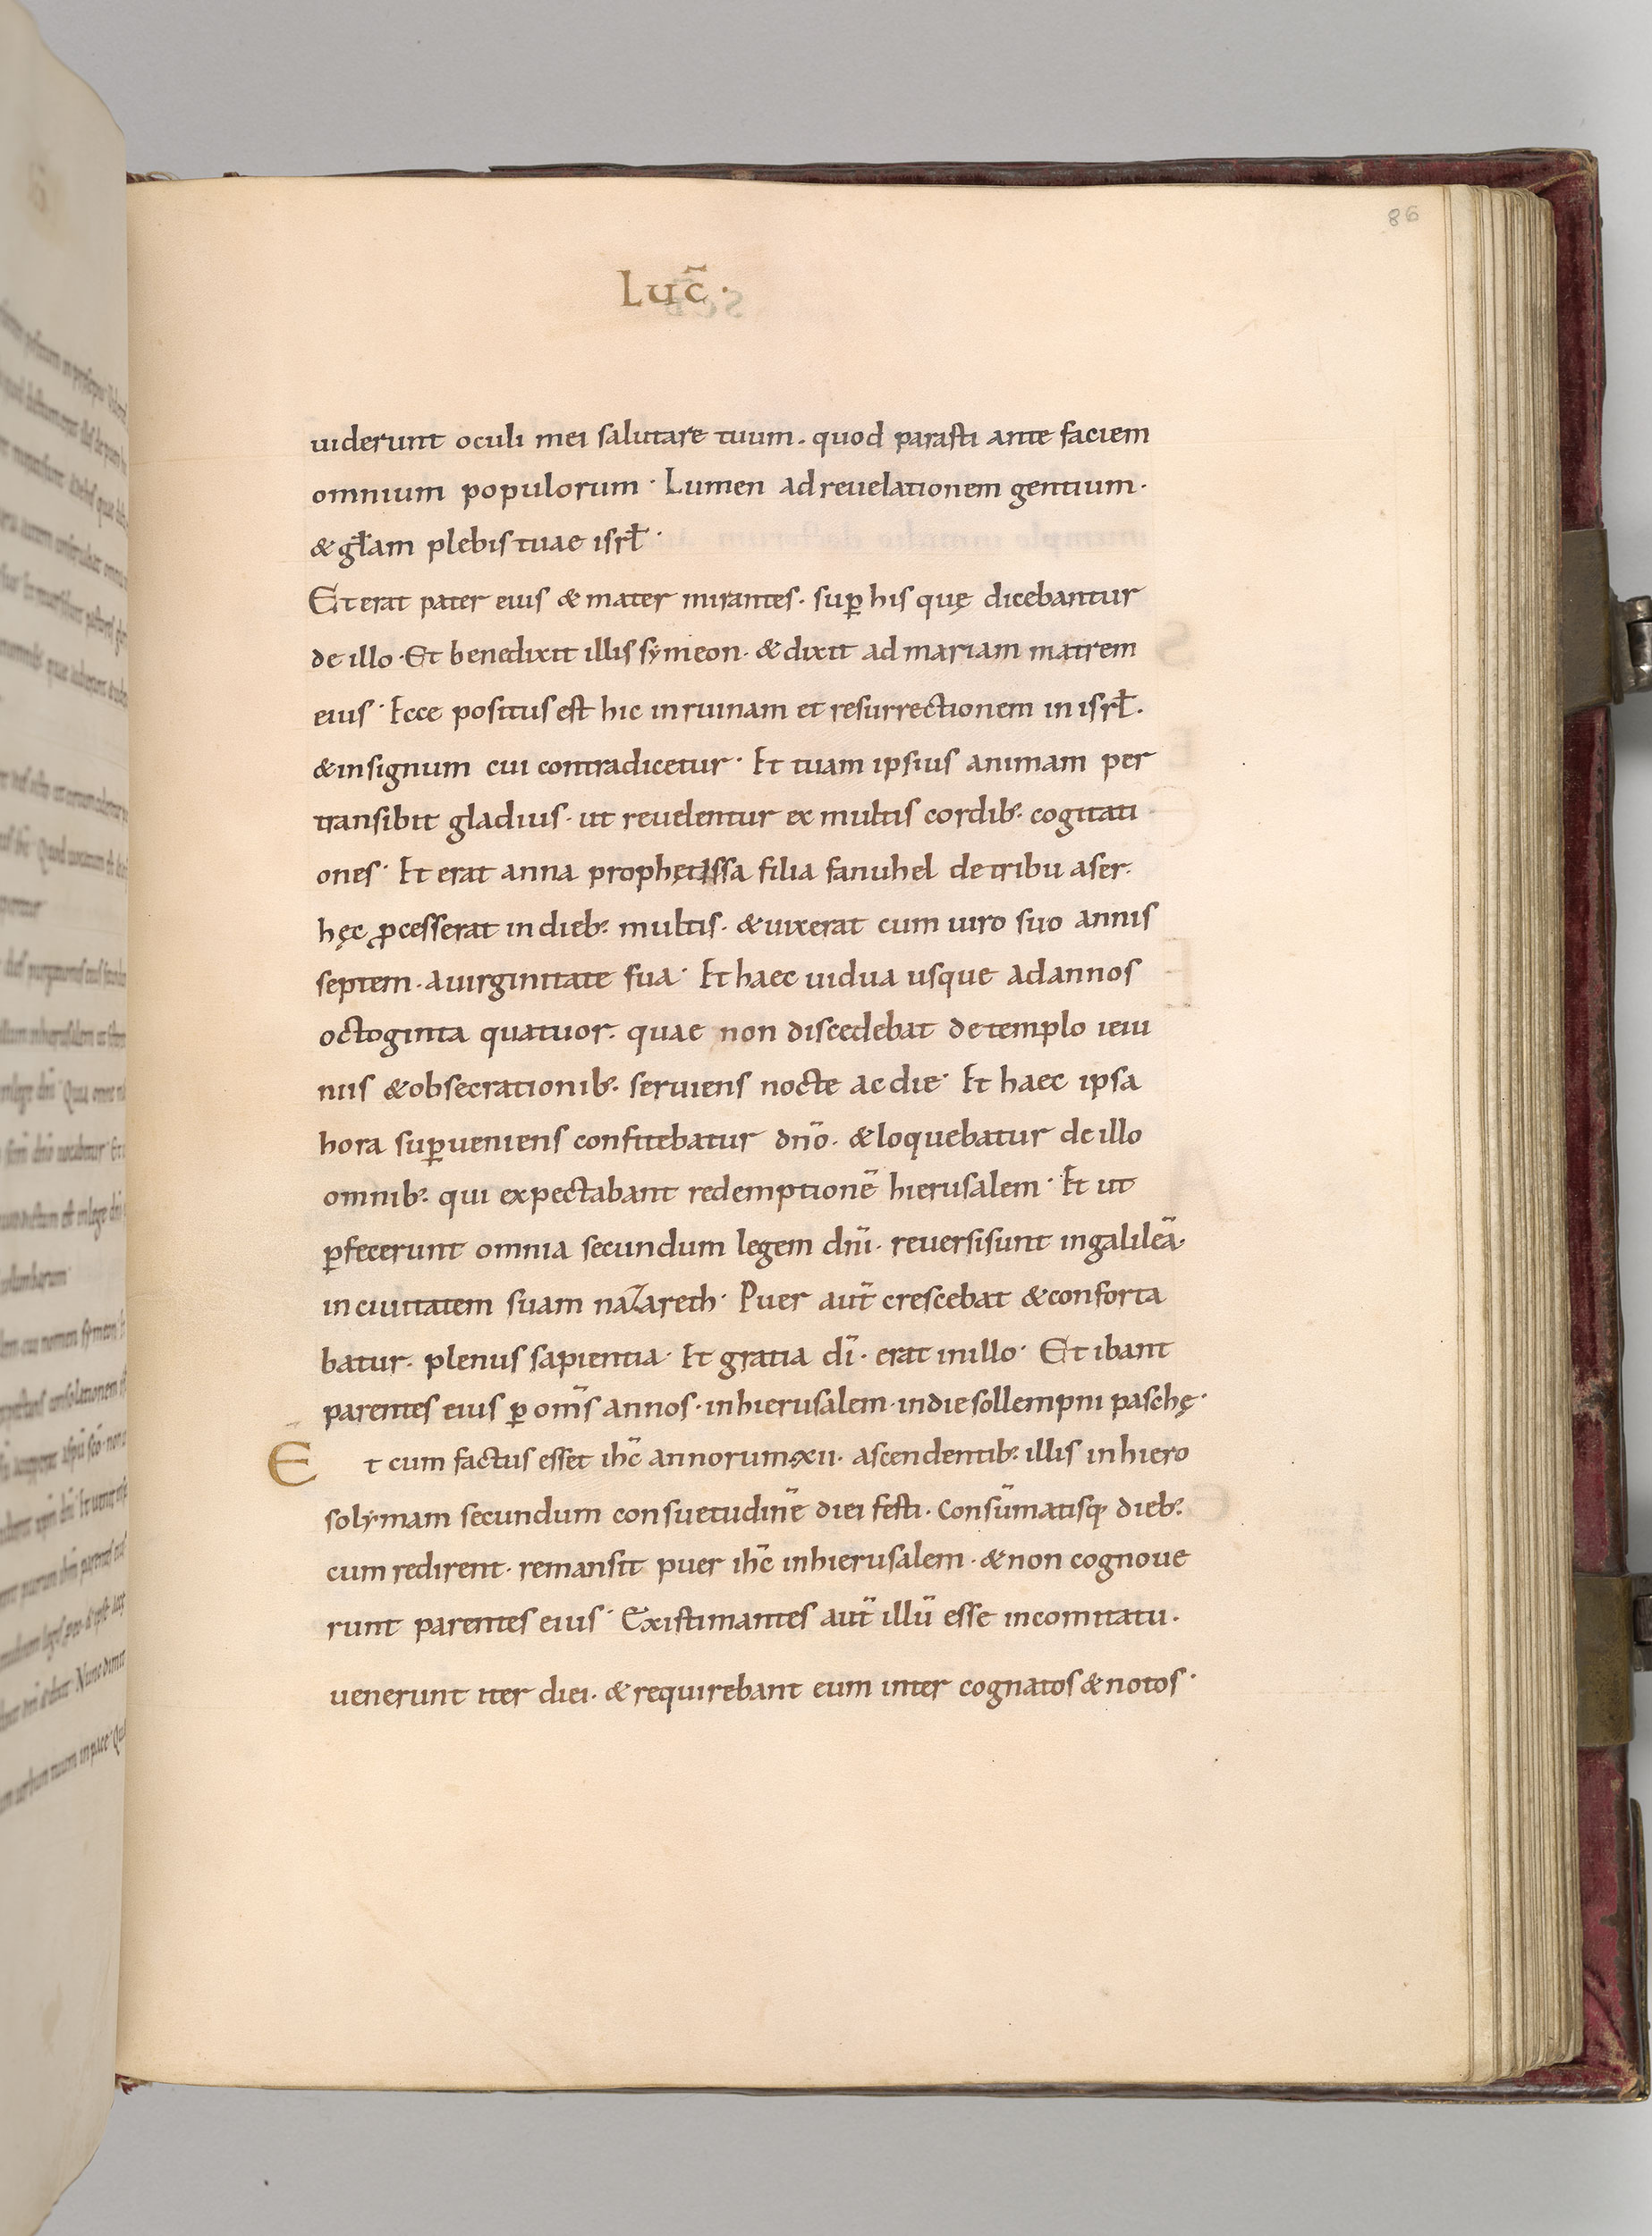 86
Luc̃·
uiderunt oculi mei salutare tuum. quod parasti ante faciem
omnium populorum · Lumen ad reuelationem gentium·
& głam plebis tuae isrł ·
Et erat pater eius & mater mirantes· suꝑ his quę dicebantur
de illo · Et benedixit illis symeon· & dixit ad mariam matrem
eius · Ecce positus est hic in ruinam et resurrectionem in isrł·
& in signum cui contradicetur · Et tuam ipsius animam per
transibit gladius· ut reuelentur ex multis cordib; cogitati
ones · Et erat anna prophętissa filia fanuhel de tribu aser·
hęc ꝓcesserat in dieb; multis· & uixerat cum uiro suo annis
septem· a uirginitate sua · Et haec uidua usque ad annos
octoginta quatuor· quae non discedebat de templo ieiu
niis & obsecrationib; seruiens nocte ac die · Et haec ipsa
hora suꝑueniens confitebatur dño· & loquebatur de illo
omnib; qui expectabant redemptionẽ hierusalem · Et ut
ꝑfecerunt omnia secundum legem dñi· reuersi sunt in galileã·
in ciuitatem suam nazareth · Puer aut̃ crescebat & conforta
batur· plenus sapientia· Et gratia dĩ· erat in illo · Et ibant
parentes eius ꝑ om̃s annos· in hierusalem· in die sollempni paschę·
Et cum factus esset ihc̃ annorum·xii· ascendentib; illis in hiero
solymam secundum consuetudinẽ diei festi· Consũmatisq; dieb;
cum redirent· remansit puer ihc̃ in hierusalem· & non cognoue
runt parentes eius · Existimantes aut̃ illũ esse in comitatu·
uenerunt iter diei· & requirebant eum inter cognatos & notos ·